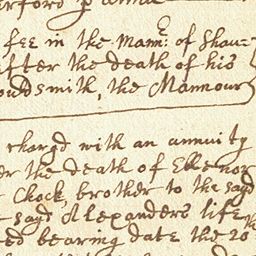 fee in the Mann:e of Shau=
after the death of his
ouldsmith, the Mannour
chargd with an annuity
er the death of Ellenor
Chock, brother to the sayd
sayd Alexanders life
ed bearing date the 20th